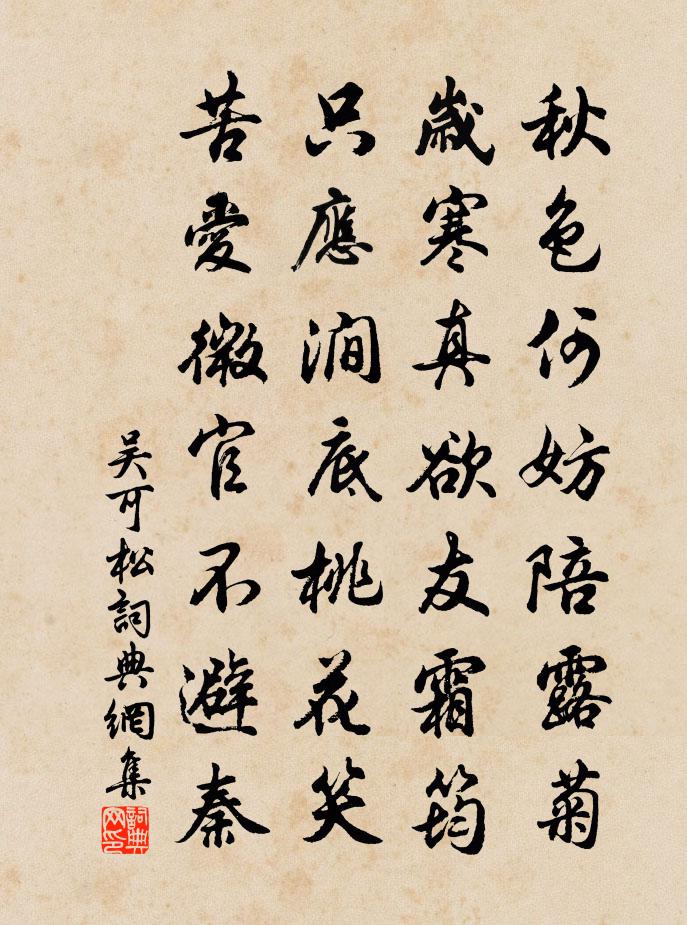 秋色何妨陪露菊
歲寒真欲友霜筠
只應澗底桃花笑
苦愛微官不避秦
吴可松詞典網集
詞典网印